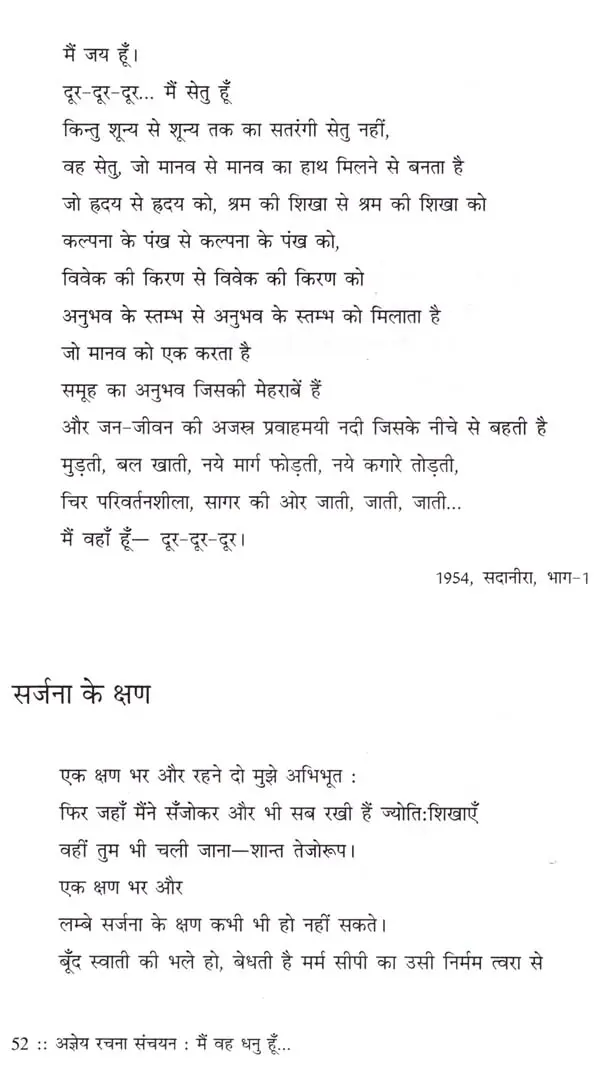 मैं जय हूँ।
दूर-दूर-दूर... मैं सेतु हूँ
किन्तु शून्य से शून्य तक का सतरंगी सेतु नहीं,
वह सेतु, जो मानव से मानव का हाथ मिलने से बनता है
जो हृदय से हृदय को, श्रम की शिखा से श्रम की शिखा को
कल्पना के पंख से कल्पना के पंख को,
विवेक की किरण से विवेक की किरण को
अनुभव के स्तम्भ से अनुभव के स्तम्भ को मिलाता है
जो मानव को एक करता है
समूह का अनुभव जिसकी मेहराबें हैं
और जन-जीवन की अजस्र प्रवाहमयी नदी जिसके नीचे से बहती है
मुड़ती, बल खाती, नये मार्ग फोड़ती, नये कगारे तोड़ती,
चिर परिवर्तनशीला, सागर की ओर जाती, जाती, जाती...
मैं वहाँ हूँ— दूर-दूर-दूर।
1954, सदानीरा, भाग-1
सर्जना के क्षण
एक क्षण भर और रहने दो मुझे अभिभूत :
फिर जहाँ मैंने सँजोकर और भी सब रखी हैं ज्योति:शिखाएँ
वहीं तुम भी चली जाना—शान्त तेजोरूप।
एक क्षण भर और
लम्बे सर्जना के क्षण कभी भी हो नहीं सकते।
बूँद स्वाती की भले हो, बेधती है मर्म सीपी का उसी निर्मम त्वरा से
52 :: अज्ञेय रचना संचयन : मैं वह धनु हूँ...